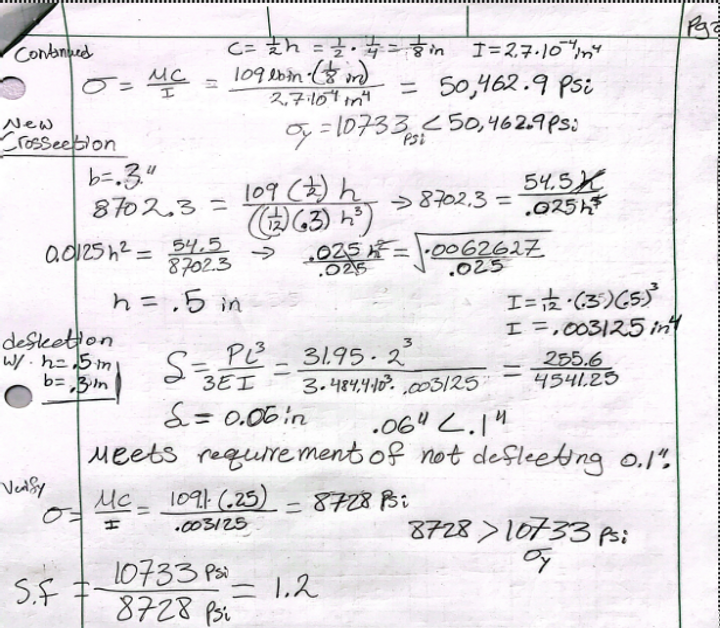 Pg 2
Continued
C = ½h = ½ · ¼ = ⅛ in   I = 2.7·10⁻⁴ in⁴
σ = MC/I = 109 lbin·(⅛ in) / 2.7·10⁻⁴ in⁴ = 50,462.9 psi
σy = 10733 psi < 50,462.9 psi
New
Crossection
b = .3"
8702.3 = 109 (½) h / ((1/12)(.3) h³) → 8702.3 = 54.5 h / .025 h³
0.0125h² = 54.5 / 8702.3 → .025 h² / .025 = √.0062627 / .025
h = .5 in
I = 1/12 · (.3)(.5)³
I = .003125 in⁴
deflection
w/ h = .5 in
b = .3 in
δ = PL³ / 3EI = 31.95 · 2³ / 3 · 484.4·10³ · .003125 = 255.6 / 4541.25
δ = 0.06 in   .06" < .1"
Meets requirement of not deflecting 0.1".
Verify
σ = MC/I = 109.1 (.25) / .003125 = 8728 psi
8728 > 10733 psi
σy
S.f = 10733 psi / 8728 psi = 1.2